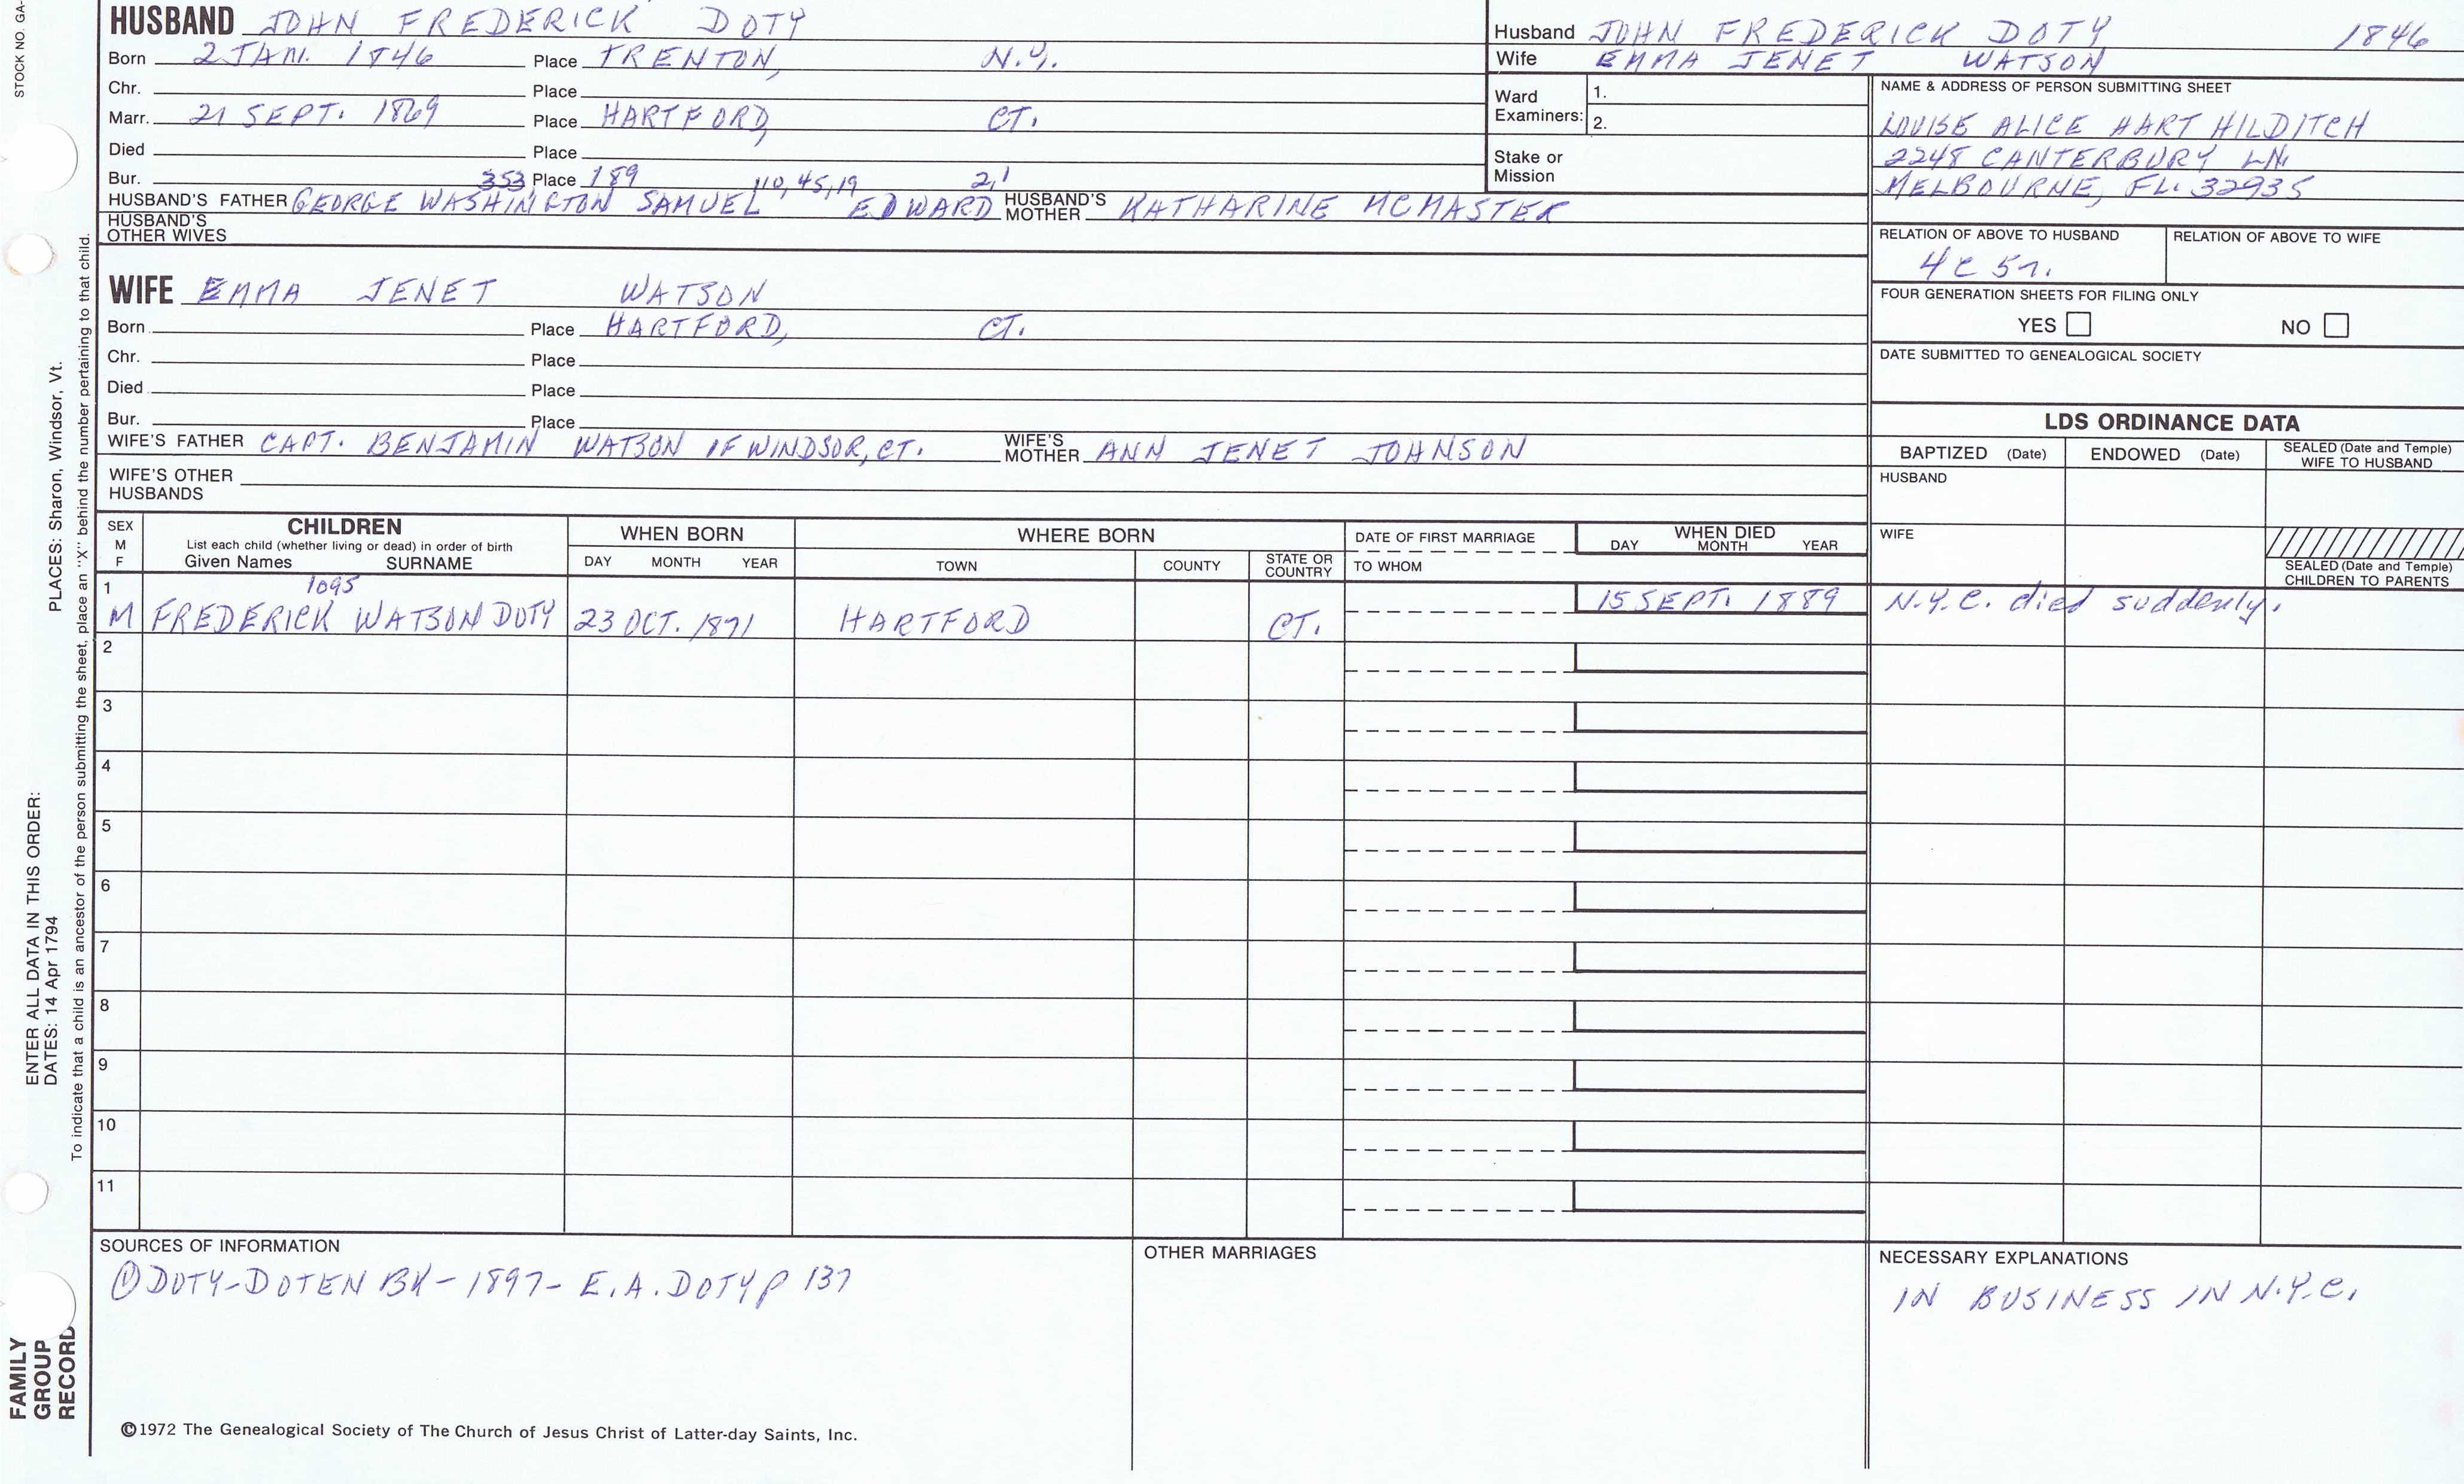 STOCK NO. GA-
HUSBAND JOHN FREDERICK DOTY
Born 2 JAN. 1846 Place TRENTON, N.Y.
Chr. Place
Marr. 21 SEPT. 1869 Place HARTFORD, CT.
Died Place
Bur. 353 Place 189 110, 45, 19 2, 1
HUSBAND'S FATHER GEORGE WASHINGTON SAMUEL EDWARD HUSBAND'S MOTHER KATHARINE MCMASTER
HUSBAND'S OTHER WIVES
Husband JOHN FREDERICK DOTY 1846
Wife EMMA JENET WATSON
Ward Examiners: 1.
2.
Stake or Mission
NAME & ADDRESS OF PERSON SUBMITTING SHEET
LOUISE ALICE HART HILDITCH
2248 CANTERBURY LN.
MELBOURNE, FL. 32935
RELATION OF ABOVE TO HUSBAND RELATION OF ABOVE TO WIFE
4C 5r.
FOUR GENERATION SHEETS FOR FILING ONLY
YES NO
DATE SUBMITTED TO GENEALOGICAL SOCIETY
WIFE EMMA JENET WATSON
Born Place HARTFORD, CT.
Chr. Place
Died Place
Bur. Place
WIFE'S FATHER CAPT. BENJAMIN WATSON OF WINDSOR, CT. WIFE'S MOTHER ANN JENET JOHNSON
WIFE'S OTHER HUSBANDS
LDS ORDINANCE DATA
BAPTIZED (Date) ENDOWED (Date) SEALED (Date and Temple) WIFE TO HUSBAND
HUSBAND
WIFE
SEALED (Date and Temple) CHILDREN TO PARENTS
SEX M F CHILDREN WHEN BORN WHERE BORN DATE OF FIRST MARRIAGE WHEN DIED
List each child (whether living or dead) in order of birth
Given Names SURNAME DAY MONTH YEAR TOWN COUNTY STATE OR COUNTRY TO WHOM DAY MONTH YEAR
1 1095
M FREDERICK WATSON DOTY 23 OCT. 1871 HARTFORD CT. 15 SEPT. 1889 N.Y.C. died suddenly.
2
3
4
5
6
7
8
9
10
11
SOURCES OF INFORMATION
① DOTY-DOTEN BK - 1897 - E. A. DOTY p 137
OTHER MARRIAGES
NECESSARY EXPLANATIONS
IN BUSINESS IN N.Y.C.
©1972 The Genealogical Society of The Church of Jesus Christ of Latter-day Saints, Inc.
FAMILY GROUP RECORD
ENTER ALL DATA IN THIS ORDER:
DATES: 14 Apr 1794 PLACES: Sharon, Windsor, Vt.
To indicate that a child is an ancestor of the person submitting the sheet, place an "X" behind the number pertaining to that child.